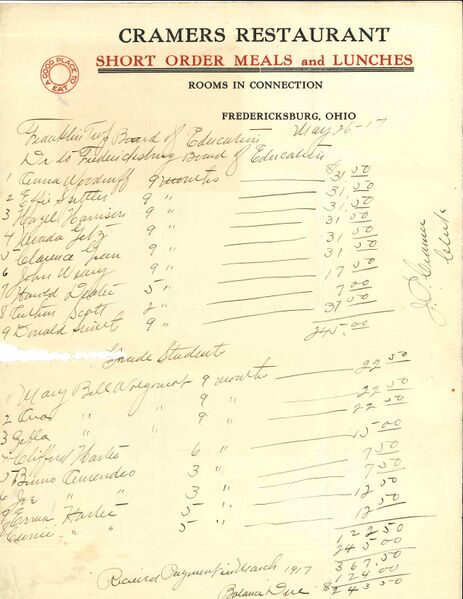 CRAMERS RESTAURANT
A GOOD PLACE TO EAT
SHORT ORDER MEALS and LUNCHES
ROOMS IN CONNECTION
FREDERICKSBURG, OHIO
May 26-17
Franklin Twp Board of Education
Dr to Fredericksburg Board of Education
1 Anna Woodruff 9 months $31.50
2 Effie 9 " 31.50
3 Hazel Harrison 9 " 31.50
4 Nevada Getz 9 " 31.50
5 Clarence 9 " 31.50
6 John 9 " 31.50
7 Harold 5 " 17.50
8 Curtis Scott 2 " 7.00
9 Donald 9 " 31.50
245.00
J.P. Cramer
Clerk
Grade Students
1 Mary Bell 9 months 22.50
2 " 9 " 22.50
3 " 9 " 22.50
4 Clifford 6 " 15.00
5 3 " 7.50
6 Joe " 3 " 7.50
5 " 12.50
" 5 " 12.50
122.50
245.00
367.50
Received Payment in March 1917 124.00
Balance Due $243.50